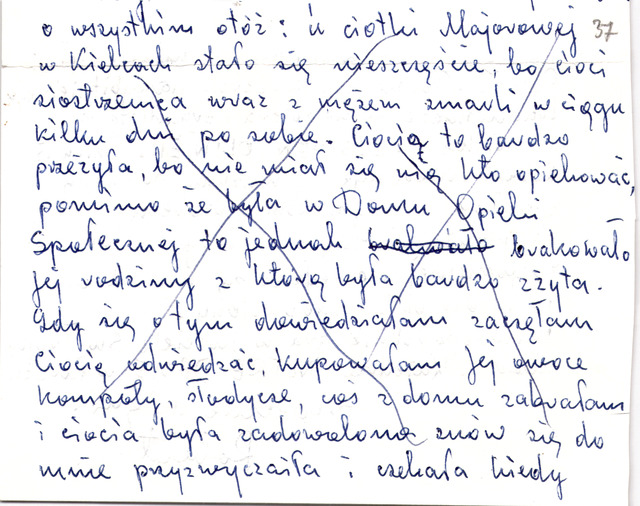 o wszystkim otóż: u ciotki Majorowej 37
w Kielcach stało się nieszczęście, bo cioci
siostrzenica wraz z mężem zmarli w ciągu
kilku dni po sobie. Ciocia to bardzo
przeżyła, bo nie miał się nią kto opiekować,
pomimo że była w Domu Opieki
Społecznej to jednak brakowało
jej rodziny z którą była bardzo zżyta.
Gdy się o tym dowiedziałam zaczęłam
Ciocię odwiedzać, kupowałam jej owoce
kompoty, słodycze, coś z domu zabrałam
i ciocia była zadowolona znów się do
mnie przyzwyczaiła i czekała kiedy